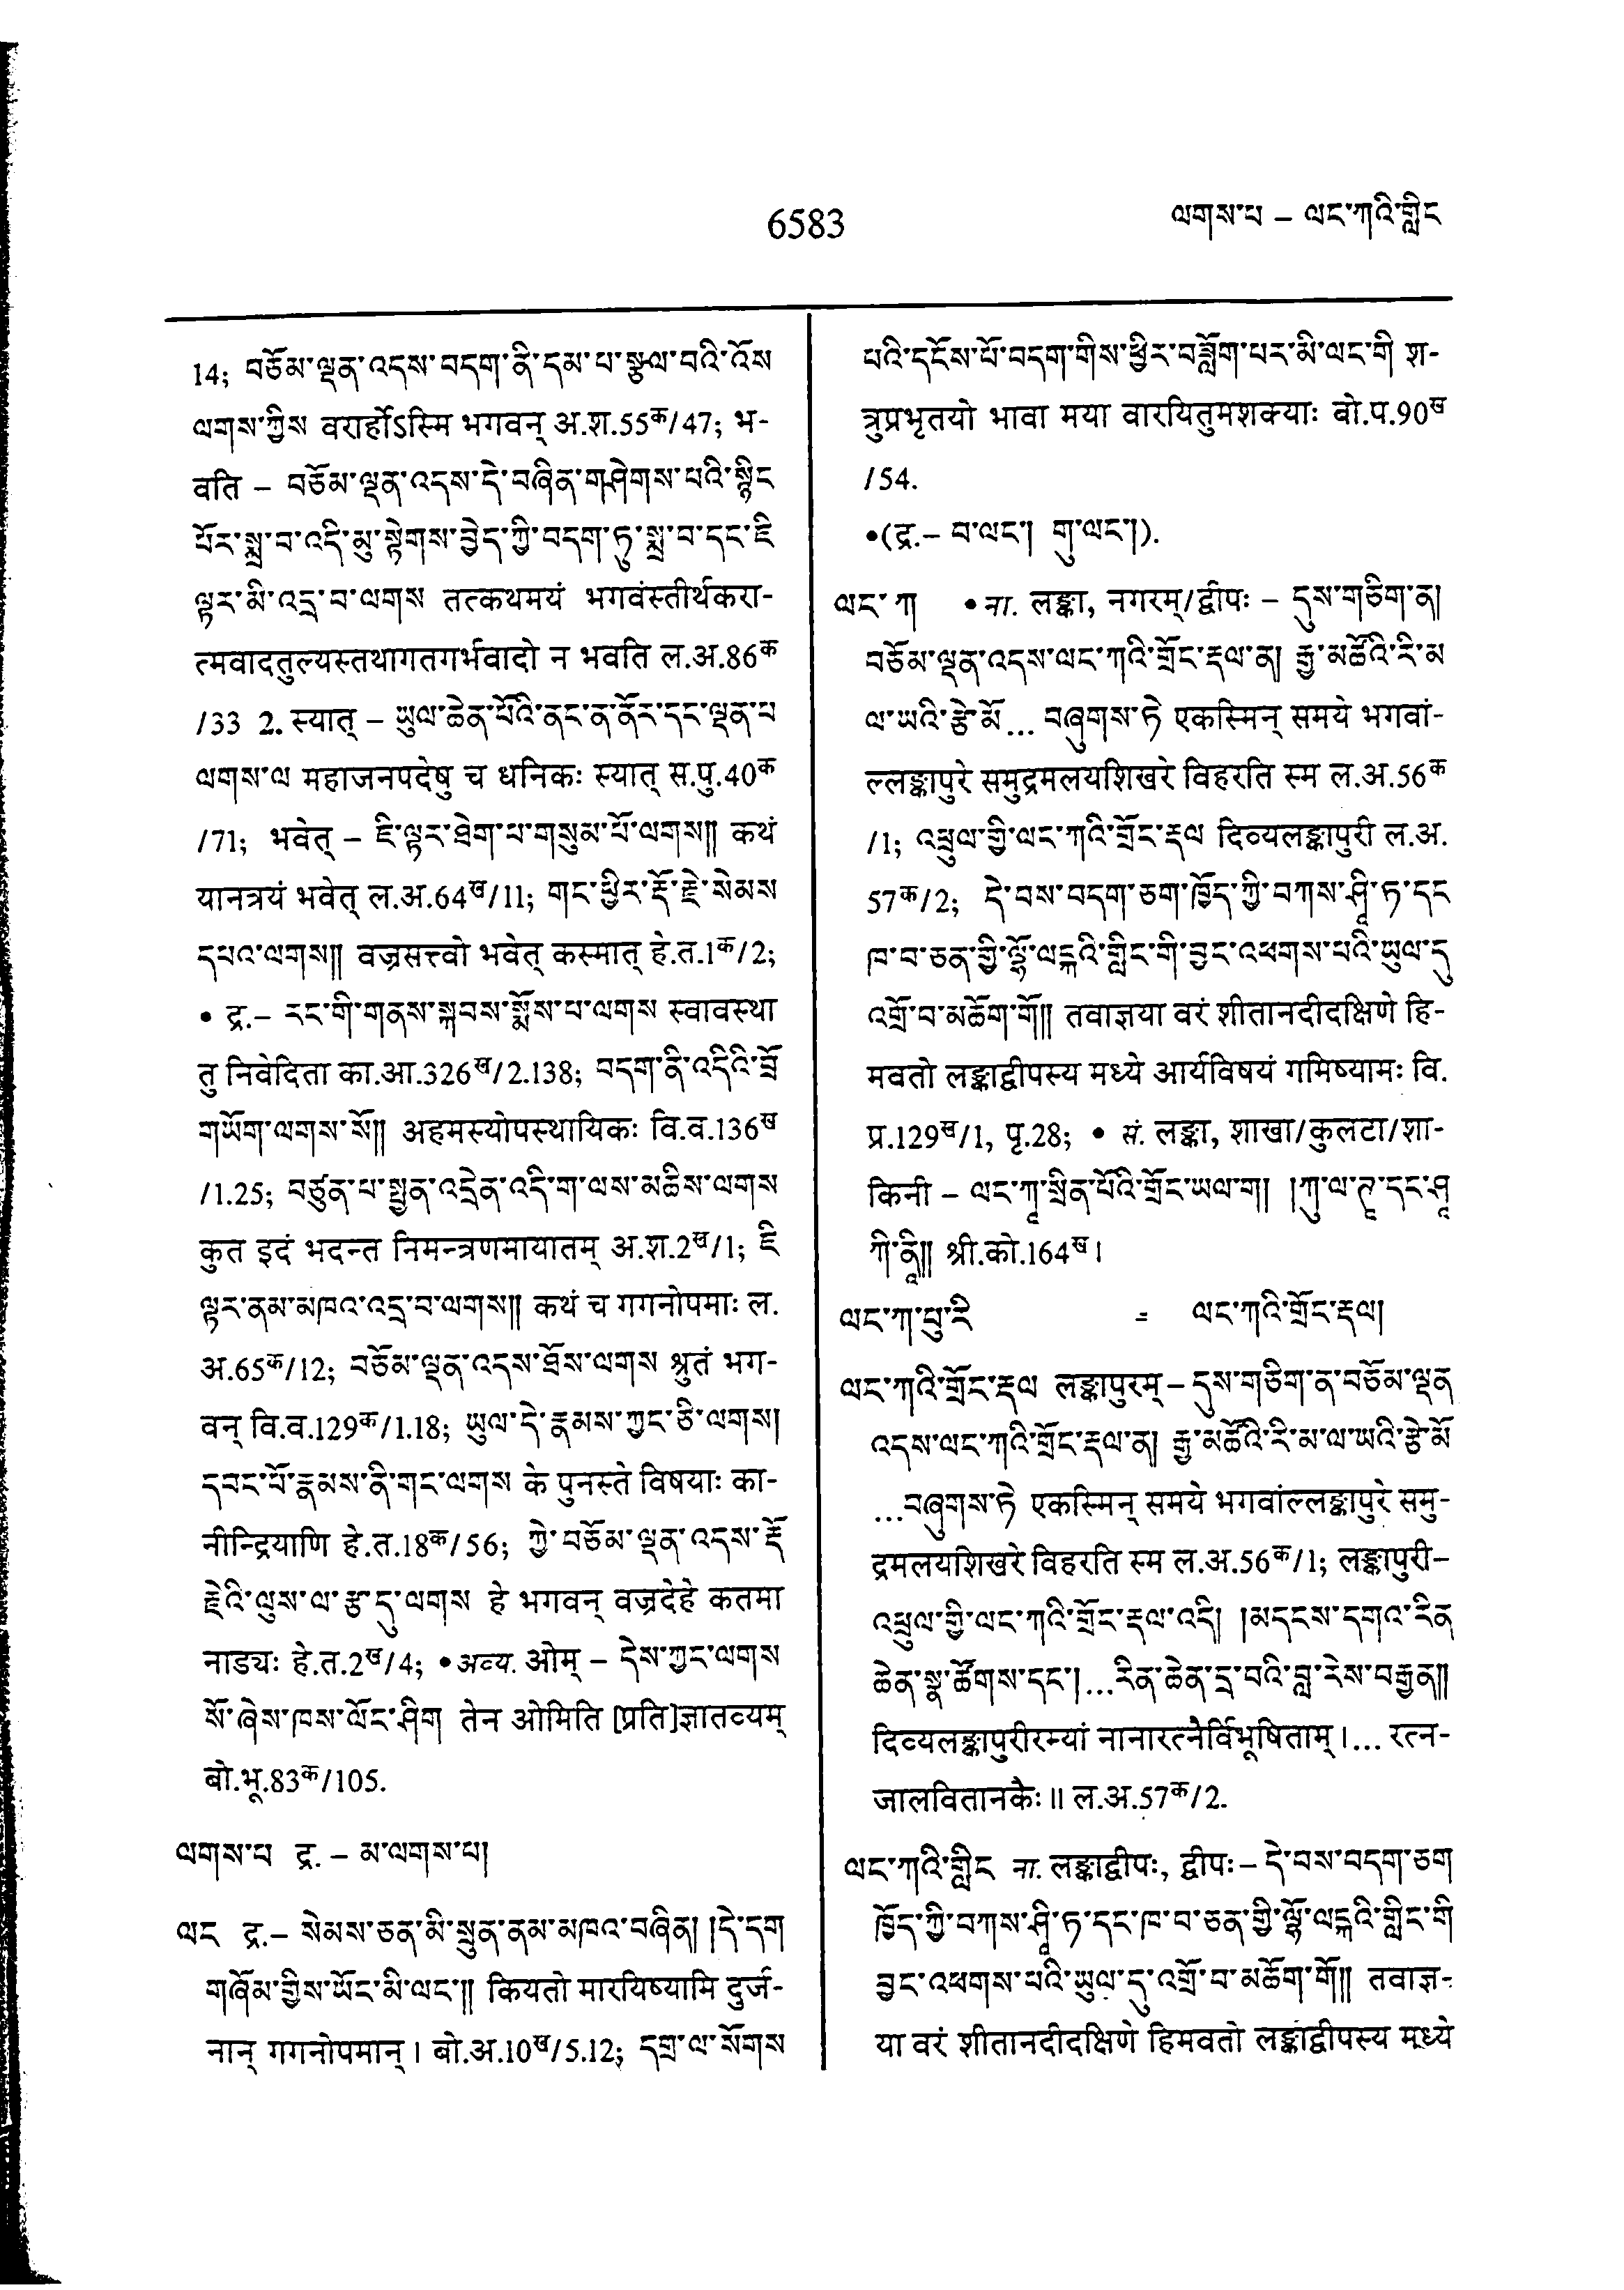 6583
ལགས་པ – ལང་ཀའི་གླིང
14; བཅོམ་ལྡན་འདས་བདག་ནི་དམ་པ་སྩལ་བའི་འོས
ལགས་ཀྱིས वरार्होऽस्मि भगवन् अ.श.55क/47; भ-
वति – བཅོམ་ལྡན་འདས་དེ་བཞིན་གཤེགས་པའི་སྙིང
པོར་སྨྲ་བ་འདི་མུ་སྟེགས་བྱེད་ཀྱི་བདག་ཏུ་སྨྲ་བ་དང་ཇི
ལྟར་མི་འདྲ་བ་ལགས तत्कथमयं भगवंस्तीर्थकरा-
त्मवादतुल्यस्तथागतगर्भवादो न भवति ल.अ.86क
/33 2. स्यात् – ཡུལ་ཆེན་པོའི་ནང་ན་ནོར་དང་ལྡན་པ
ལགས་ལ महाजनपदेषु च धनिकः स्यात् स.पु.40क
/71; भवेत् – ཇི་ལྟར་ཐེག་པ་གསུམ་པོ་ལགས།། कथं
यानत्रयं भवेत् ल.अ.64ख/11; གང་ཕྱིར་རྡོ་རྗེ་སེམས
དཔའ་ལགས།། वज्रसत्त्वो भवेत् कस्मात् हे.त.1क/2;
• द्र.– རང་གི་གནས་སྐབས་སྨོས་པ་ལགས स्वावस्था
तु निवेदिता का.आ.326ख/2.138; བདག་ནི་འདིའི་བྲོ
གཡོག་ལགས་སོ།། अहमस्योपस्थायिकः वि.व.136ख
/1.25; བཙུན་པ་སྤྱན་འདྲེན་འདི་ག་ལས་མཆིས་ལགས
कुत इदं भदन्त निमन्त्रणमायातम् अ.श.2ख/1; ཇི
ལྟར་ནམ་མཁའ་འདྲ་བ་ལགས།། कथं च गगनोपमाः ल.
अ.65क/12; བཅོམ་ལྡན་འདས་ཐོས་ལགས श्रुतं भग-
वन् वि.व.129क/1.18; ཡུལ་དེ་རྣམས་ཀྱང་ཅི་ལགས།
དབང་པོ་རྣམས་ནི་གང་ལགས के पुनस्ते विषयाः का-
नीन्द्रियाणि हे.त.18क/56; ཀྱེ་བཅོམ་ལྡན་འདས་རྡོ
རྗེའི་ལུས་ལ་རྩ་དུ་ལགས हे भगवन् वज्रदेहे कतमा
नाड्यः हे.त.2ख/4; • अव्य. ओम् – དེས་ཀྱང་ལགས
སོ་ཞེས་ཁས་ལོང་ཤིག तेन ओमिति [प्रति]ज्ञातव्यम्
बो.भू.83क/105.
ལགས་པ द्र. – མ་ལགས་པ།
ལང द्र.– སེམས་ཅན་མི་སྲུན་ནམ་མཁའ་བཞིན། །དེ་དག
གཞོམ་གྱིས་ཡོང་མི་ལང་།། कियतो मारयिष्यामि दुर्ज-
नान् गगनोपमान्। बो.अ.10ख/5.12; དགྲ་ལ་སོགས
པའི་དངོས་པོ་བདག་གིས་ཕྱིར་བཟློག་པར་མི་ལང་གི श-
त्रुप्रभृतयो भावा मया वारयितुमशक्याः बो.प.90ख
/54.
•(द्र.– བ་ལང་། གུ་ལང་།).
ལང་ཀ • ना. लङ्का, नगरम्/द्वीपः – དུས་གཅིག་ན།
བཅོམ་ལྡན་འདས་ལང་ཀའི་གྲོང་རྡལ་ན། རྒྱ་མཚོའི་རི་མ
ལ་ཡའི་རྩེ་མོ… བཞུགས་ཏེ एकस्मिन् समये भगवां-
ल्लङ्कापुरे समुद्रमलयशिखरे विहरति स्म ल.अ.56क
/1; འཕྲུལ་གྱི་ལང་ཀའི་གྲོང་རྡལ दिव्यलङ्कापुरी ल.अ.
57क/2; དེ་བས་བདག་ཅག་ཁྱོད་ཀྱི་བཀས་ཤཱི་ཏ་དང
ཁ་བ་ཅན་གྱི་ལྷོ་ལངྐའི་གླིང་གི་བྱང་འཕགས་པའི་ཡུལ་དུ
འགྲོ་བ་མཆོག་གོ།། तवाज्ञया वरं शीतानदीदक्षिणे हि-
मवतो लङ्काद्वीपस्य मध्ये आर्यविषयं गमिष्यामः वि.
प्र.129ख/1, पृ.28; • सं. लङ्का, शाखा/कुलटा/शा-
किनी – ལང་ཀཱ་སྲིན་པོའི་གྲོང་ཡལ་ག། །ཀུ་ལ་ཊཱ་དང་ཤཱ
ཀི་ནཱི།། श्री.को.164ख।
ལང་ཀ་པུ་རི = ལང་ཀའི་གྲོང་རྡལ།
ལང་ཀའི་གྲོང་རྡལ लङ्कापुरम् – དུས་གཅིག་ན་བཅོམ་ལྡན
འདས་ལང་ཀའི་གྲོང་རྡལ་ན། རྒྱ་མཚོའི་རི་མ་ལ་ཡའི་རྩེ་མོ
…བཞུགས་ཏེ एकस्मिन् समये भगवांल्लङ्कापुरे समु-
द्रमलयशिखरे विहरति स्म ल.अ.56क/1; लङ्कापुरी–
འཕྲུལ་གྱི་ལང་ཀའི་གྲོང་རྡལ་འདི། །མདངས་དགའ་རིན
ཆེན་སྣ་ཚོགས་དང་།…རིན་ཆེན་དྲ་བའི་བླ་རེས་བརྒྱན།།
दिव्यलङ्कापुरीरम्यां नानारत्नैर्विभूषिताम्।… रत्न-
जालवितानकैः॥ ल.अ.57क/2.
ལང་ཀའི་གླིང ना. लङ्काद्वीपः, द्वीपः – དེ་བས་བདག་ཅག
ཁྱོད་ཀྱི་བཀས་ཤཱི་ཏ་དང་ཁ་བ་ཅན་གྱི་ལྷོ་ལངྐའི་གླིང་གི
བྱང་འཕགས་པའི་ཡུལ་དུ་འགྲོ་བ་མཆོག་གོ།། तवाज्ञ-
या वरं शीतानदीदक्षिणे हिमवतो लङ्काद्वीपस्य मध्ये